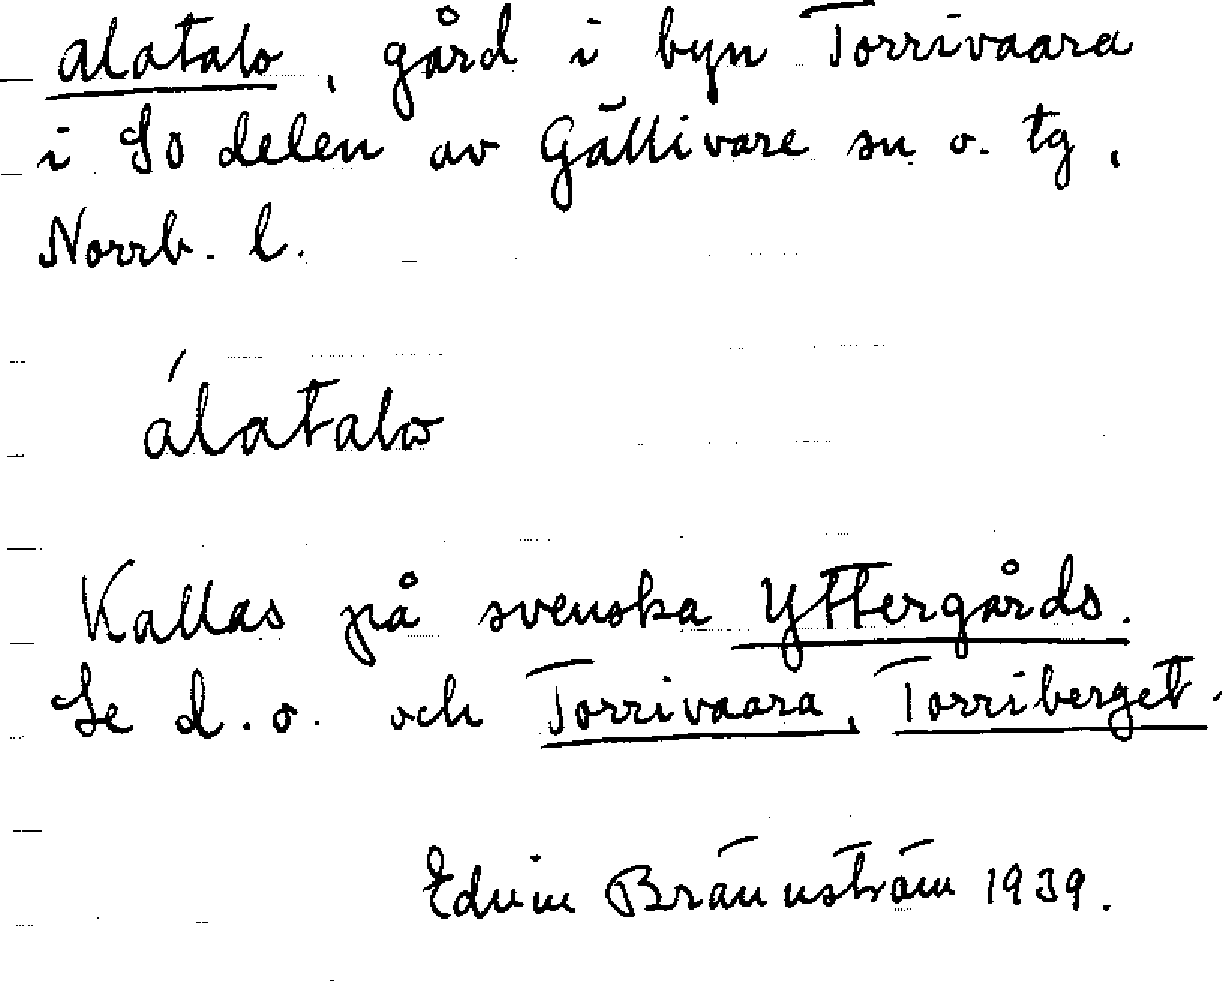 Alatalo, gård i byn Torrivaara
i SO delen av Gällivare sn o. tg,
Norrb. l.
álatalo
Kallas på svenska Yttergårds.
Se d.o. och Torrivaara, Torriberget.
Edvin Brännström 1939.